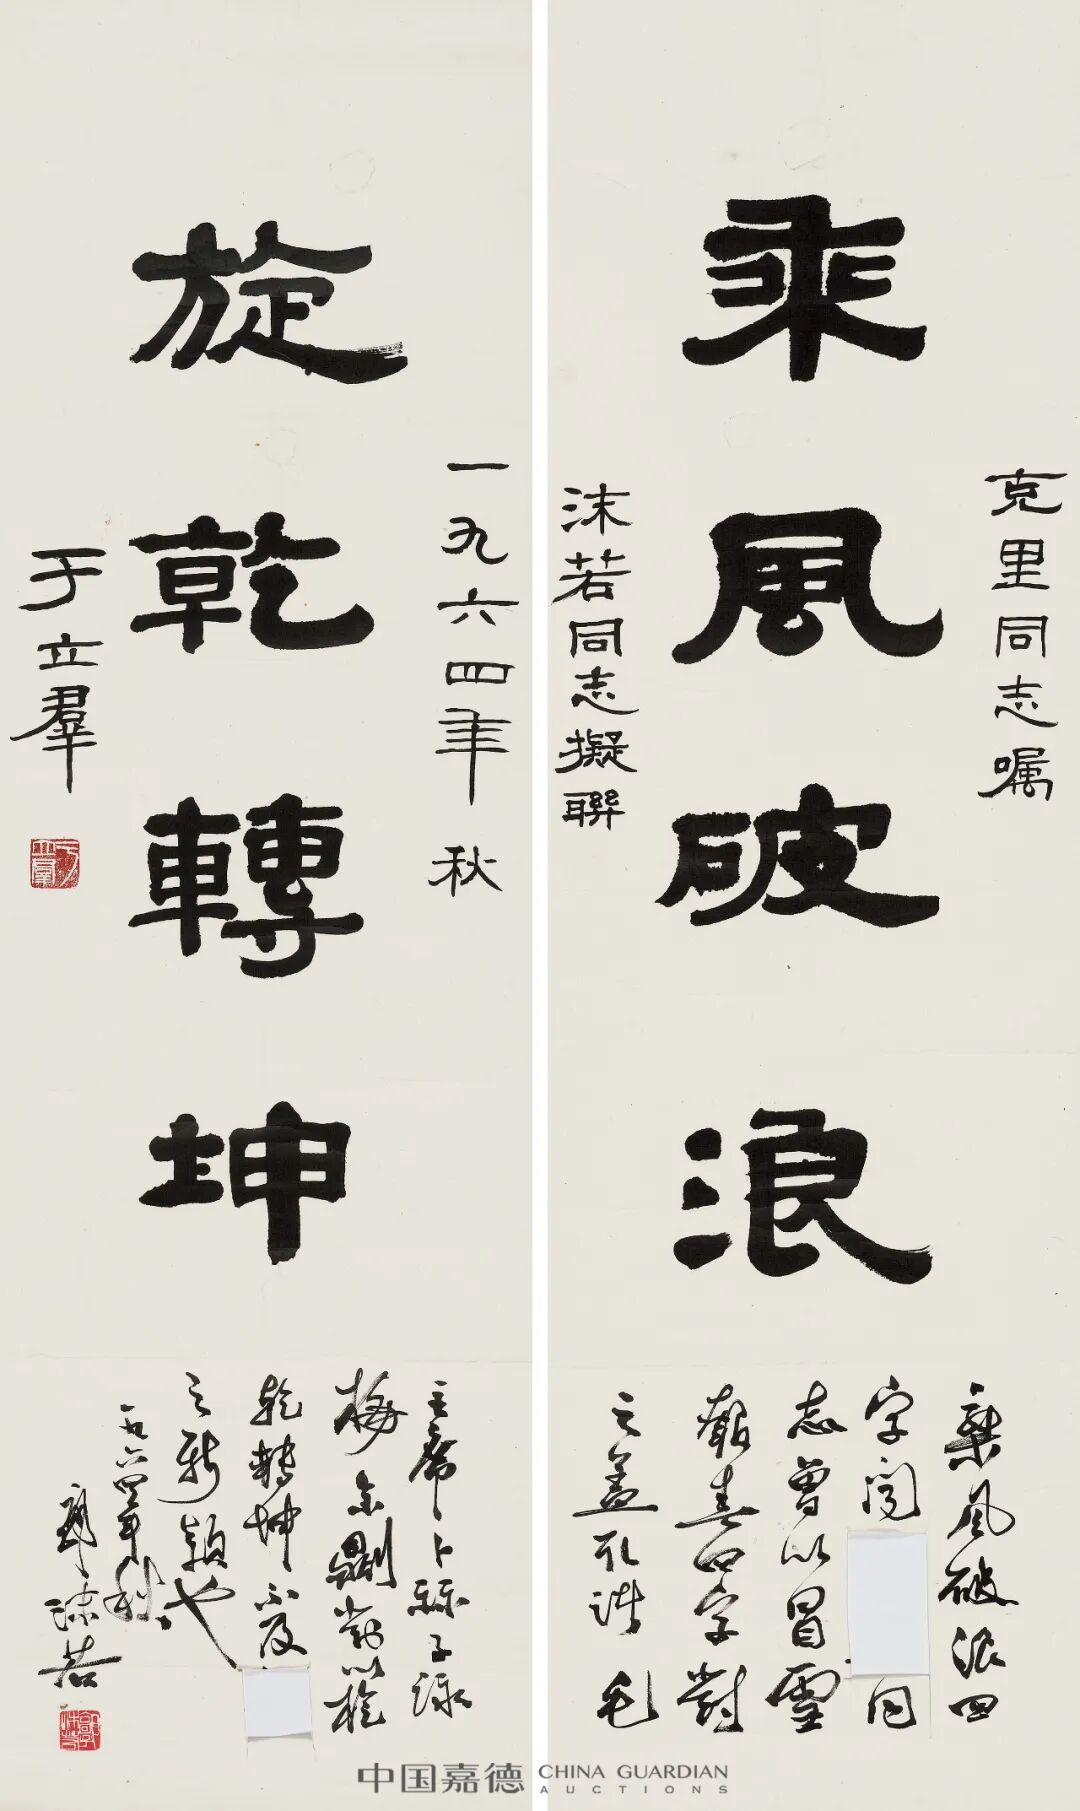 克里同志嘱
乘風破浪
沫若同志擬聯
乘風破浪四
字闻
同
志曾以冒雪
報春四字對
之蓋取諸毛
一九六四年秋
旋乾轉坤
于立羣
主席卜算子詠
梅余則對以旋
乾轉坤不及
之新穎也
一九六四年秋
郭沫若
中国嘉德 CHINA GUARDIAN
AUCTIONS